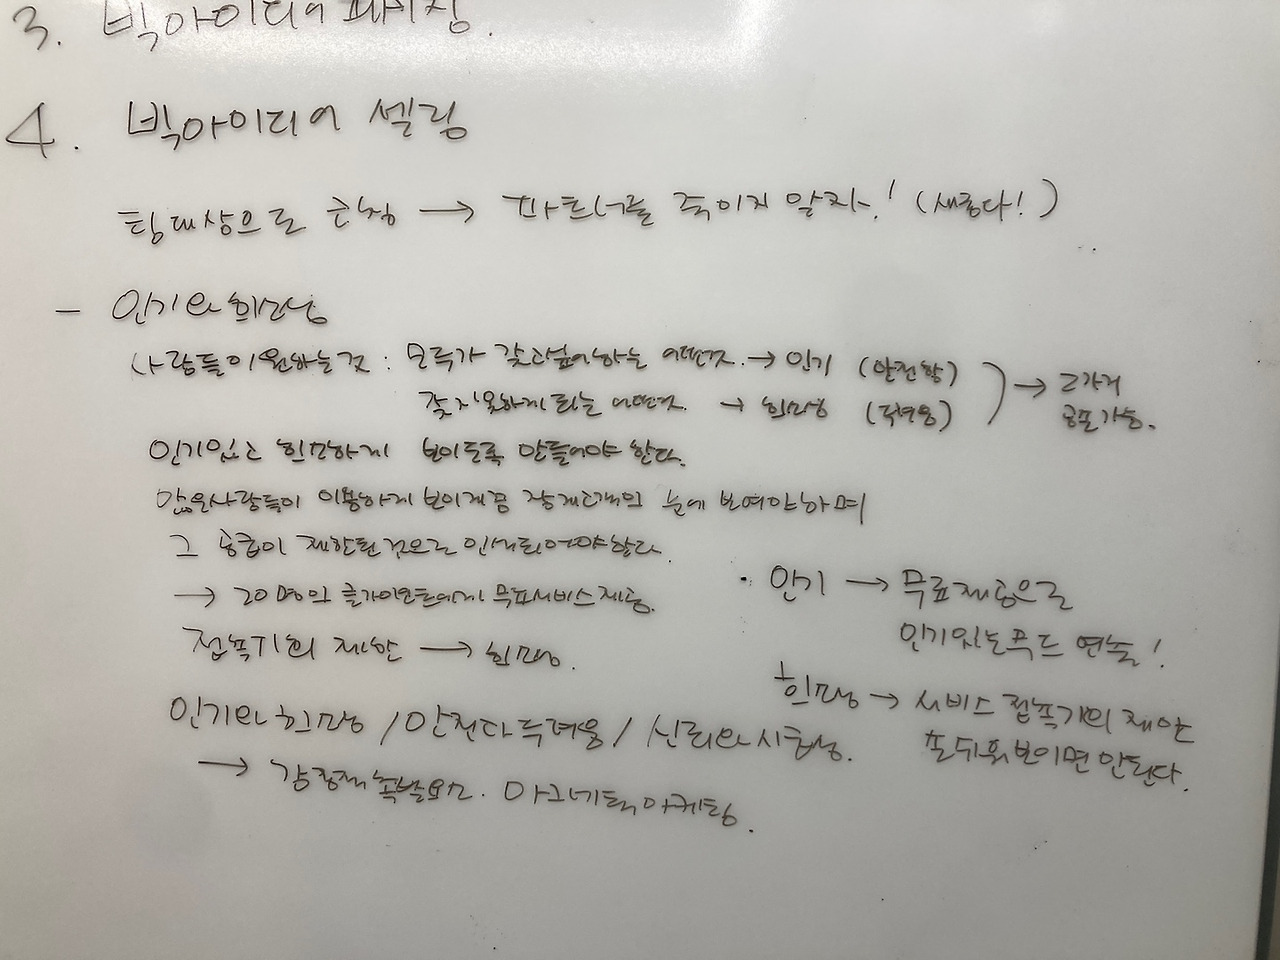 3. 빅아이디어
4. 빅아이디어 셀링
팀대상으로 → 파트너를 죽이지 말자! (새롭다!)
- 인기와 희소성
사람들이 원하는 것 : 모두가 갖고싶어하는 어떤것. → 인기 (안전함)
갖지못하게 되는 어떤것. → 희소성 (두려움)
→ 고가격
가능.
인기있고 희소하게 보이도록 만들어야 한다.
많은사람들이 이용하게 보이게끔 잠재고객의 눈에 보여야하며
그 공급이 제한된 것으로 인식되어야한다.
→ 20명의 클라이언트에게 무료서비스제공.
접촉기회 제한 → 희소성.
· 인기 → 무료제공으로
인기있는무드 연출!
희소성 → 서비스 접촉기회 제한
쉬워보이면 안된다.
인기와 희소성 / 안전과 두려움 / 신뢰와 시급성.
→ 감정적 촉발요소. 마그네틱마케팅.